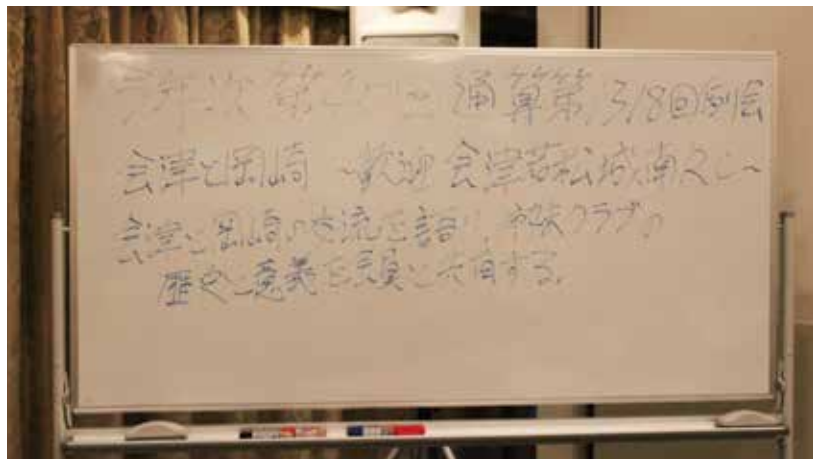 今年次 第 通算第1318回例会
会津と岡崎 ～歓迎 会津若松城南RC～
会津と岡崎の交流を語り 姉妹クラブの
歴史と意義を会員と共有する。